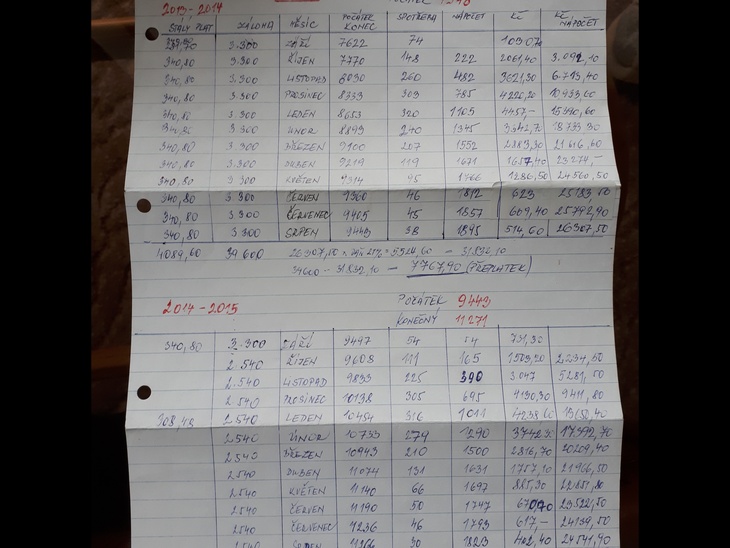 2013-2014
STÁLÝ PLAT ZÁLOHA MĚSÍC POČÁTEK KONEC SPOTŘEBA NÁPOČET KČ KČ NÁPOČET
3.300 ZÁŘÍ 7622 74
340,80 3.300 ŘÍJEN 7770 148 222 2061,40 3.092,10
340,80 3.300 LISTOPAD 8030 260 482 3621,30
340,80 3.300 PROSINEC 8333 303 785 4220,20 10.933,60
340,80 3.300 LEDEN 8653 320 1105 4457,- 15390,60
340,80 3.300 ÚNOR 8893 240 1345 3342,70 18733,30
340,80 3.300 BŘEZEN 9100 207 1552 2883,30 21616,60
340,80 3.300 DUBEN 9219 119 1671 1657,40 23274,-
340,80 3.300 KVĚTEN 9314 95 1766 1286,50 24560,50
340,80 3 300 ČERVEN 9360 46 1812 623 25183,50
340,80 3 300 ČERVENEC 9405 45 1857 609,40 25792,90
340,80 3 300 SRPEN 9443 38 1895 514,60 26307,50
4089,60 39 600 5524,60 - 31832,10
39600 - 31832,10 - 7767,90 (PŘEPLATEK)
2014-2015 POČÁTEK 9443
KONEČNÝ 11271
340,80 3.300 ZÁŘÍ 9497 54 54 731,30
2.540 ŘÍJEN 9608 111 165 1503,20 2.234,50
2.540 LISTOPAD 9833 225 390 3047 5281,50
2.540 PROSINEC 10138 305 695 4130,30 9411,80
308,48 2.540 LEDEN 10454 316 1011 4238,60 13650,40
2.540 ÚNOR 10733 279 1290 3742,30 17392,70
2.540 BŘEZEN 10943 210 1500 2816,70 20209,40
2.540 DUBEN 11074 131 1631 1757,10 21966,50
2.540 KVĚTEN 11140 66 1697 885,30 22851,80
2.540 ČERVEN 11190 50 1747 670,70 23522,50
2.540 ČERVENEC 11236 46 1793 617,- 24139,50
2.540 SRPEN 11266 30 1823 402,40 24541,90